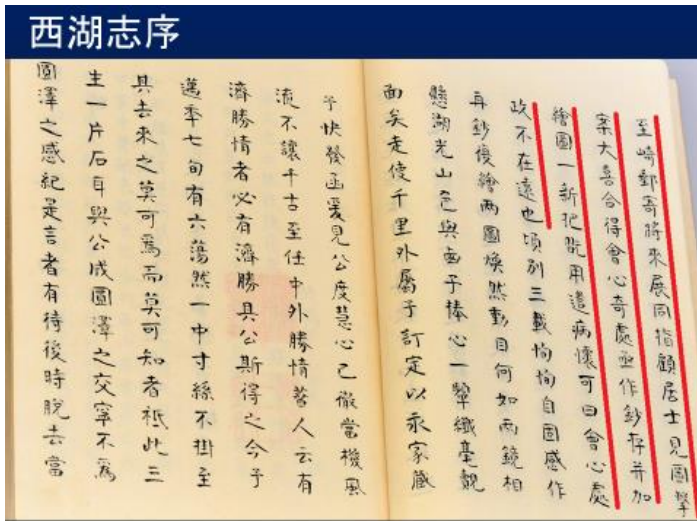 西湖志序
至崎郵寄將來展同指顧居士見圖擊
案大喜合得會心奇處亟作鈔存并加
繪圖一新把翫用遣病懷可曰會心處
政不在遠也頃別三載恂恂自固感作
再鈔復繪兩圖煥然動目何如兩鏡相
懸湖光山色與西子捧心一顰纖毫靚
面矣走使千里外屬予訂定以永家藏
予快發函爰見公度慧心已徹當機風
流不讓千古至任中外勝情昔人云有
濟勝情者必有濟勝具公斯得之今予
邁季七旬有六蕩然一中寸絲不掛至
其去來之莫可為而莫可知者祇此三
生一片石耳與公成圓澤之交寧不為
圓澤之感紀是言者有待後時脫去當